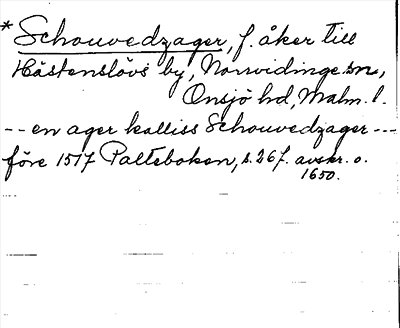 * Schouvedzager, f. åker till
Hästenslövs by, Norrvidinge sn,
Onsjö hd, Malm. l.
-- en ager kalliss Schouvedzager ---
före 1517 Palteboken, s. 267. avskr. o.
1650.